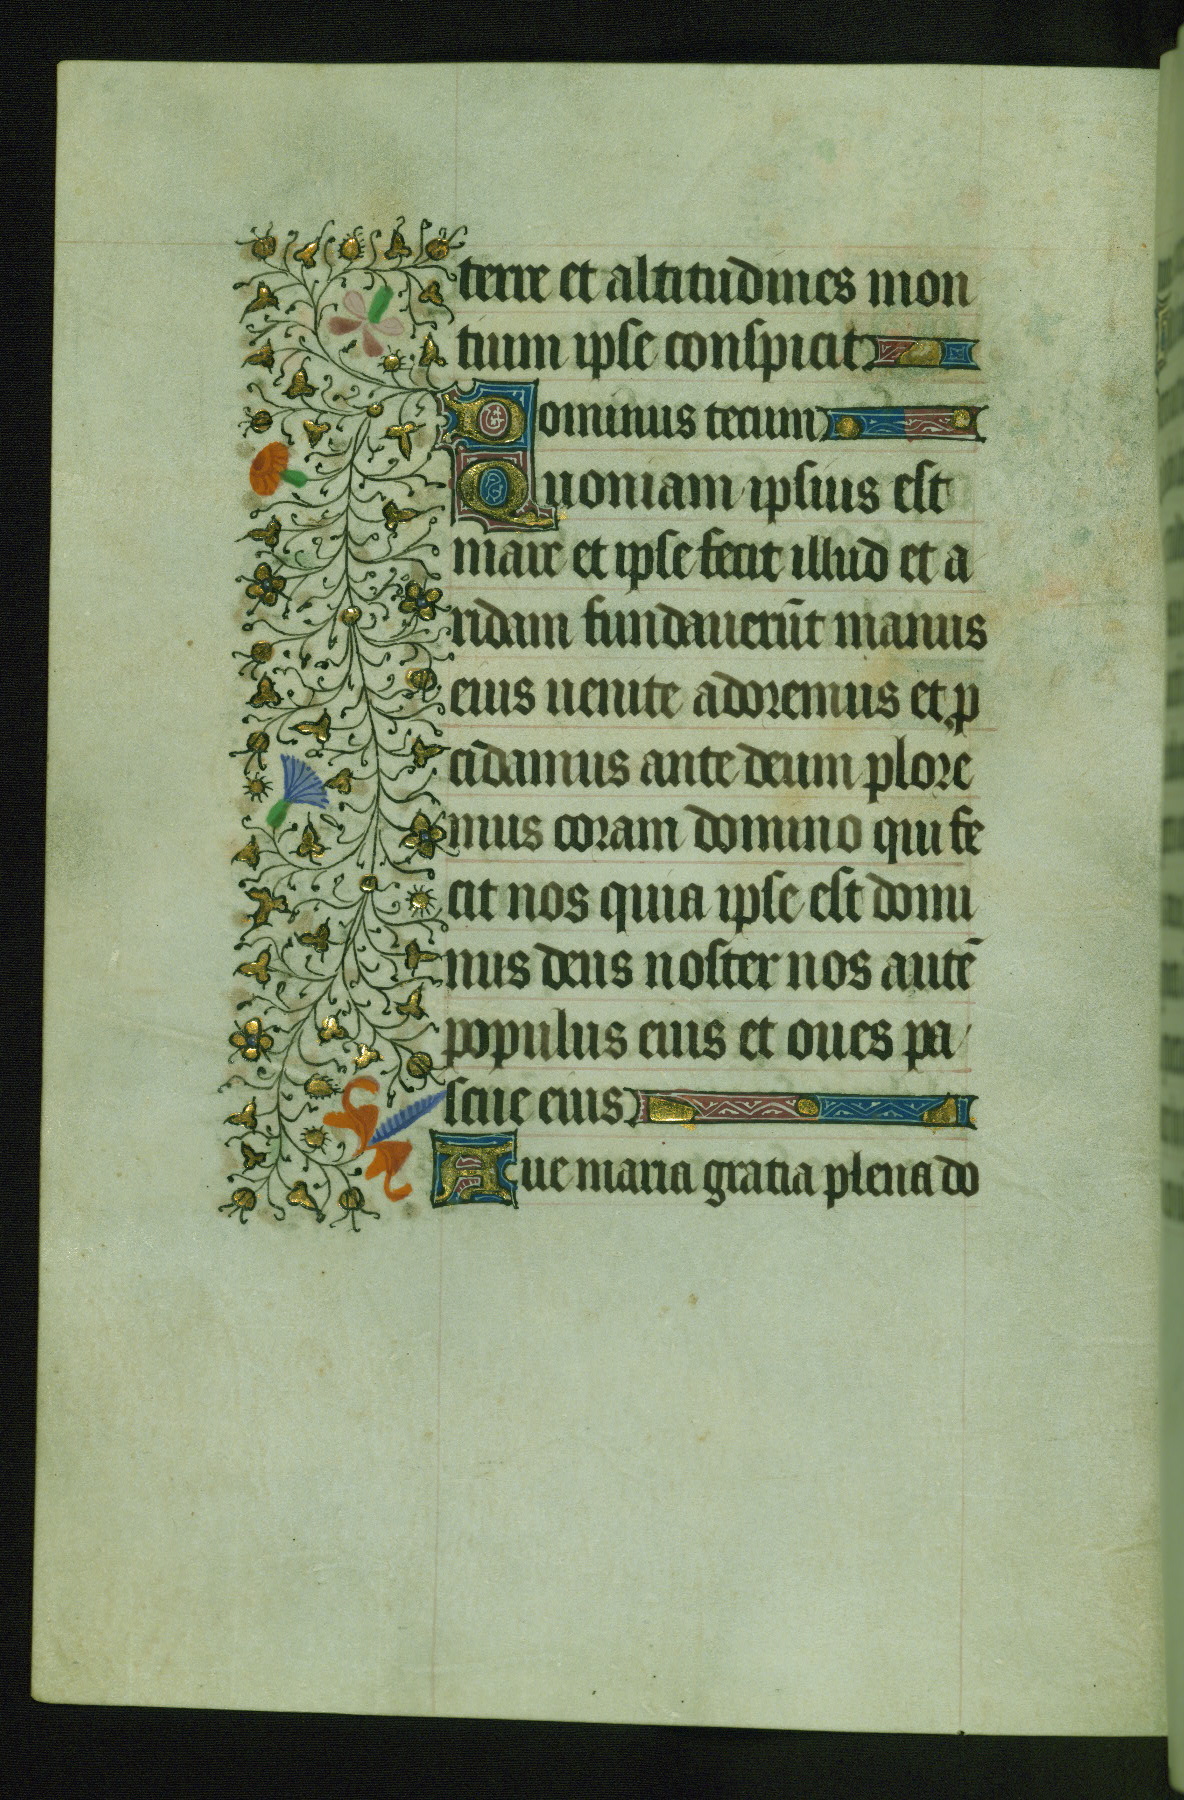 terre et altitudines mon
tium ipse conspicit
Dominus tecum
Quoniam ipsius est
mare et ipse fecit illud et a
ridam fundauerūt manus
eius uenite adoremus et p
cidamus ante deum plore
mus coram domino qui fe
cit nos quia ipse est domi
nus deus noster nos autē
populus eius et oues pa
scue eius
Aue maria gratia plena do